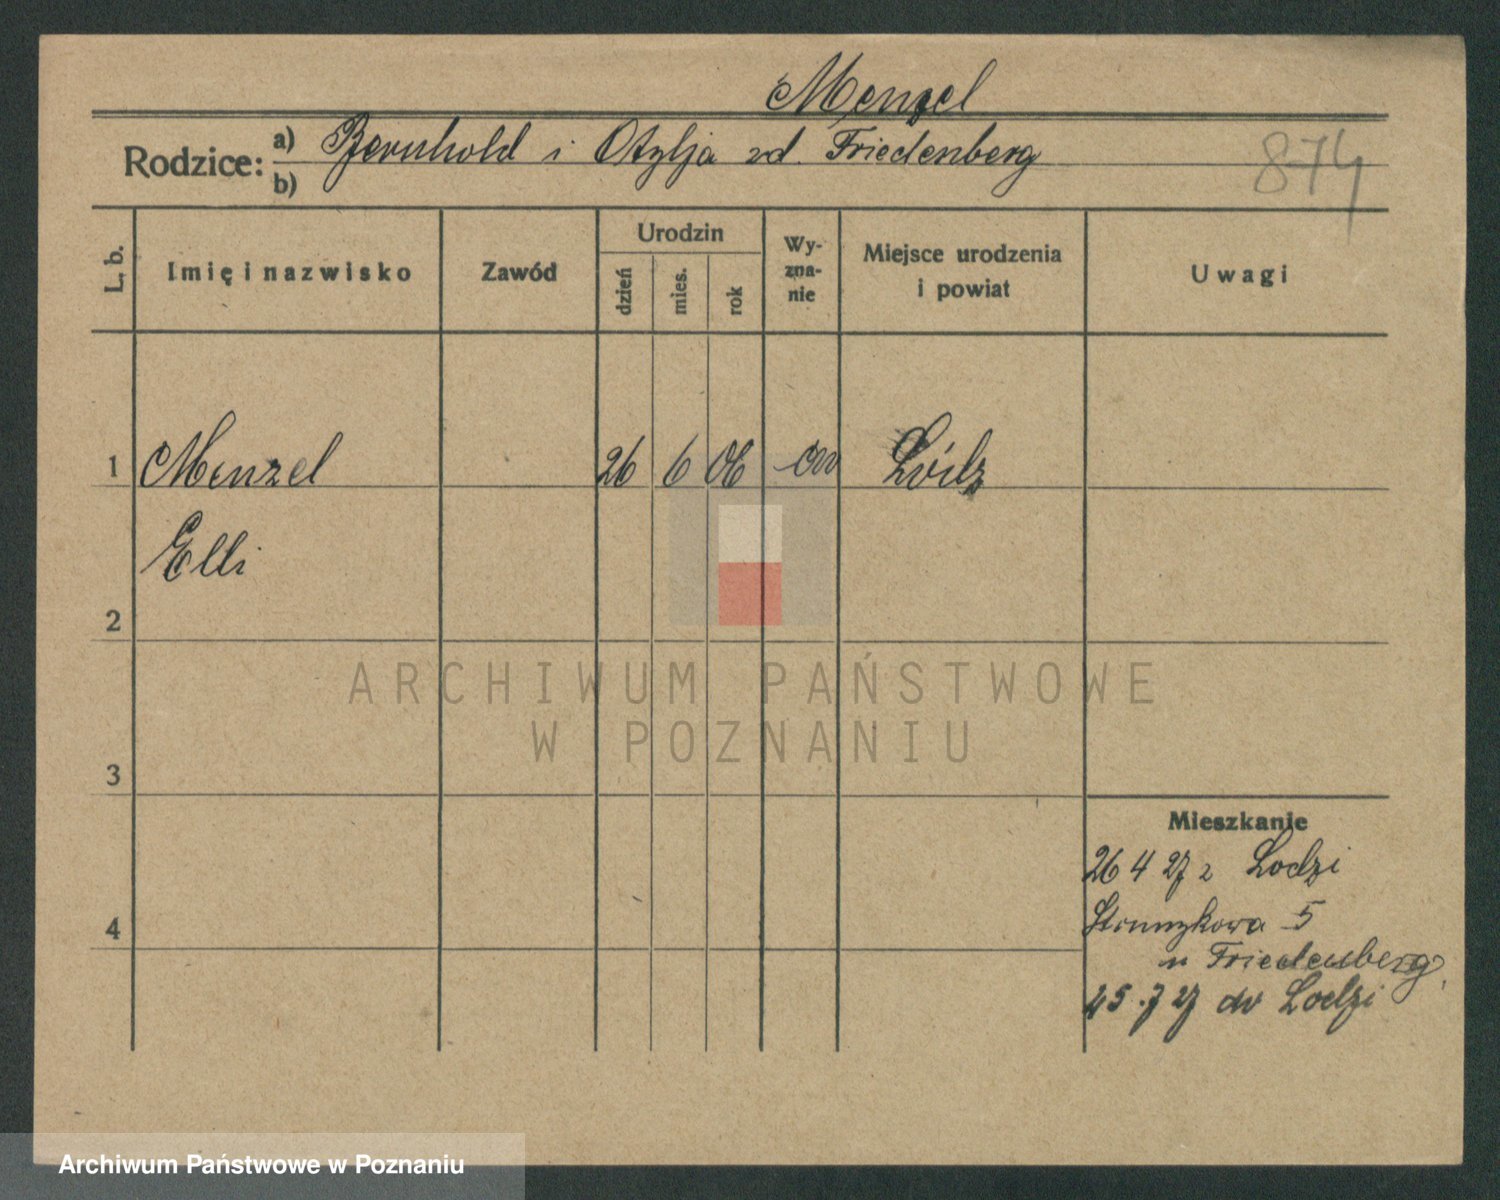 Menzel
Rodzice: a) Bernhold i Otylja zd. Friedenberg
b)
874
L. b. Imię i nazwisko Zawód Urodzin dzień mies. rok Wyznanie Miejsce urodzenia i powiat Uwagi
1 Menzel 26 6 06 ew Łódz
Elli
2
ARCHIWUM PAŃSTWOWE
W POZNANIU
3
Mieszkanie
26 4 27 z Lodzi
4
5
u Friedenberg
25.7 27 do Lodzi
Archiwum Państwowe w Poznaniu